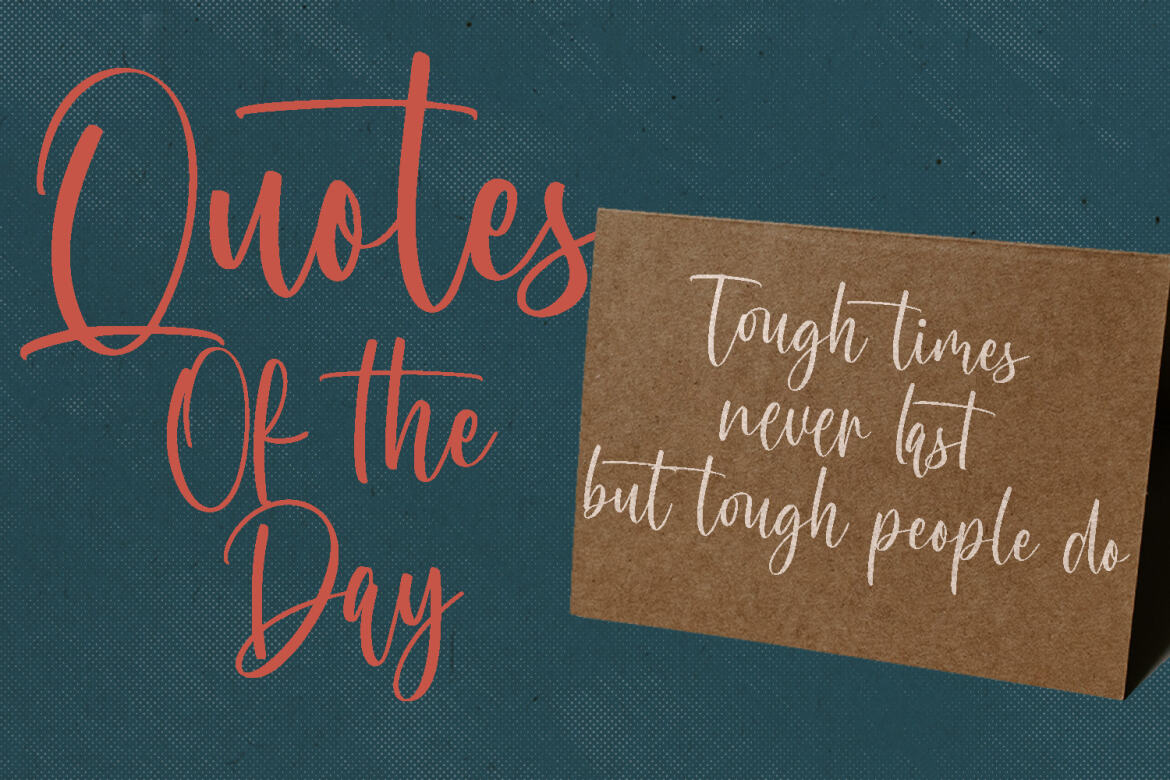 Quotes
Of the
Day
Tough times
never last
but tough people do